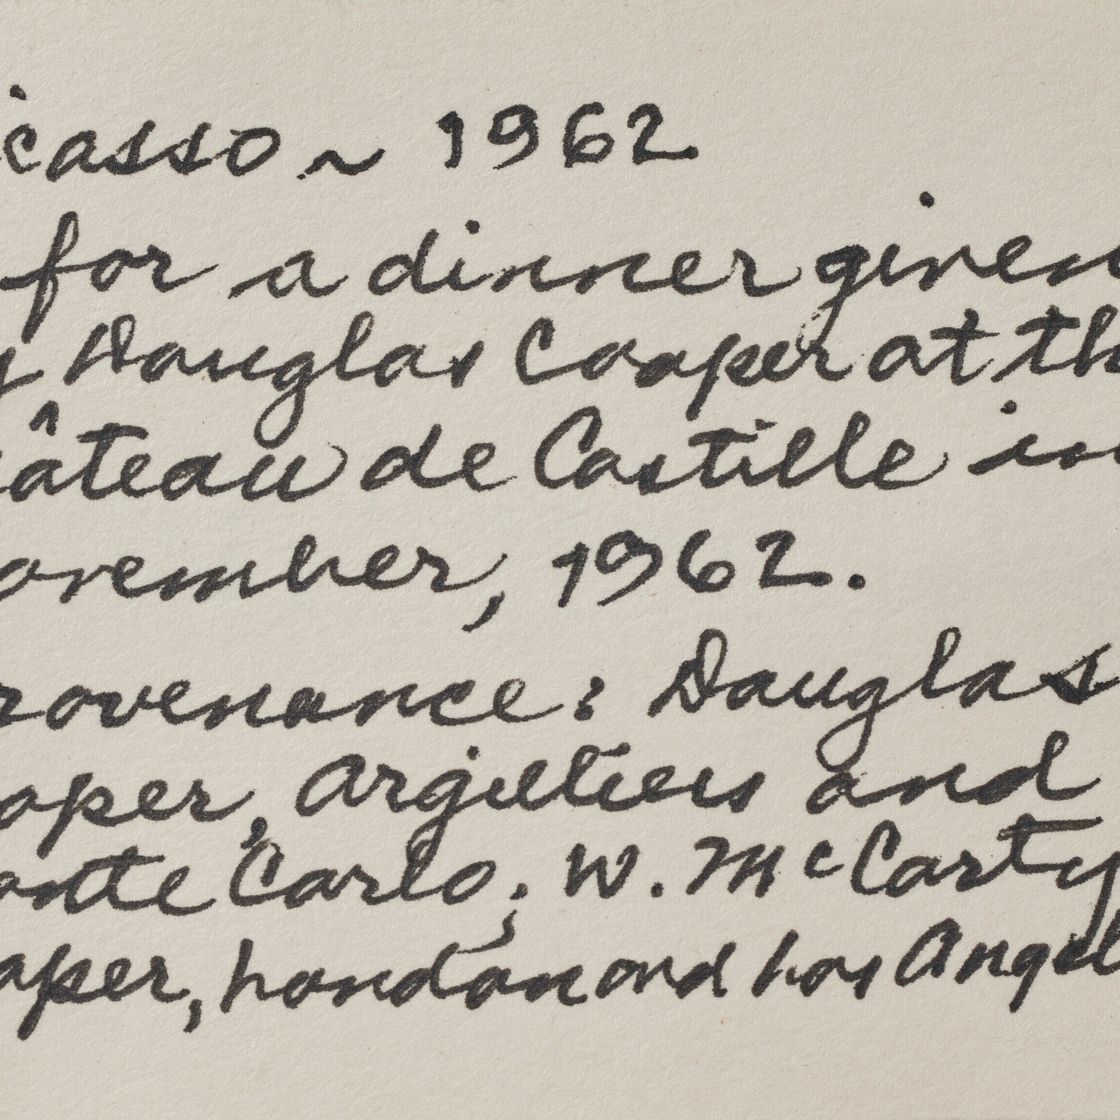 icasso ~ 1962
for a dinner given
y Douglas Cooper at th
âteau de Castille in
ovember, 1962.
rovenance: Douglas
oper, Argilliers and
onte Carlo; W. McCarty
oper, London and Los Angel